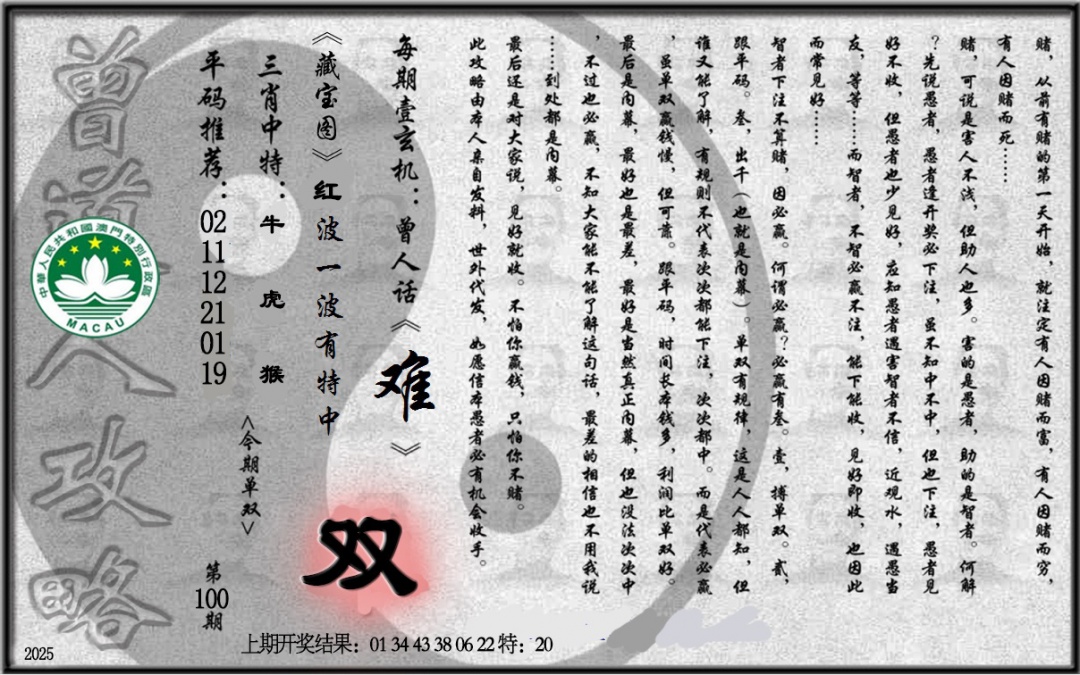 赌，从前有赌的第一天开始，就注定有人因赌而富，有人因赌而穷，
有人因赌而死……
赌，可说是害人不浅，但助人也多。害的是愚者，助的是智者。何解
？先说愚者，愚者逢开奖必下注，虽不知中不中，但也下注，愚者见
好不收，但愚者也少见好，应知愚者遇害智者不信，近观水，遇愚当
友，等等……而智者，不智必赢不注，能下能收，见好即收，也因此
而常见好……
智者下注不算赌，因必赢。何谓必赢？必赢有叁。壹，搏单双。贰，
跟平码。叁，出千（也就是内幕）。单双有规律，这是人人都知，但
谁又能了解，有规则不代表次次都能下注，次次都中。而是代表必赢
，虽单双赢钱慢，但可靠。跟平码，时间长本钱多，利润比单双好。
最后是内幕，最好也是最差，最好是当然真正内幕，但也没法次次中
，不过也必赢，不知大家能不能了解这句话，最差的相信也不用我说
……到处都是内幕。
最后还是对大家说，见好就收。不怕你赢钱，只怕你不赌。
此攻略由本人亲自发料，世外代发，如愿信本愚者必有机会收手。
每期壹玄机：曾人话《难》
《藏宝图》红波一波有特中
三肖中特：牛 虎 猴
平码推荐：02 11 12 21 01 19
<今期单双>
双
第100期
曾道人攻略
中華人民共和國澳門特別行政區
MACAU
上期开奖结果：01 34 43 38 06 22 特：20
2025